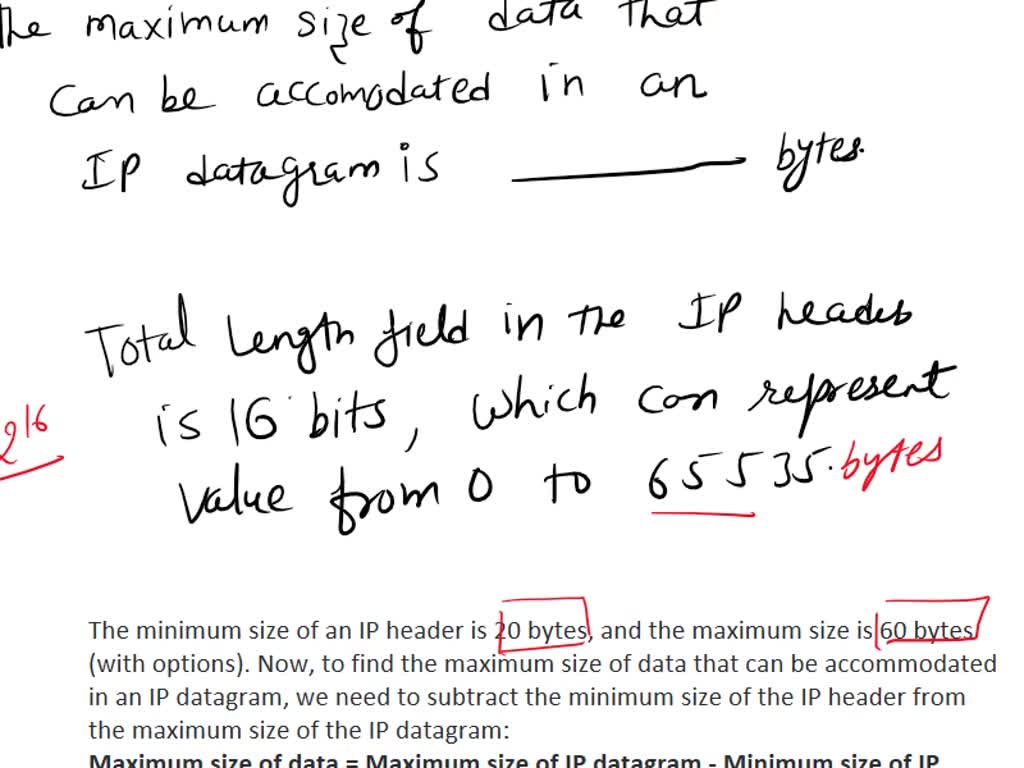 The maximum size of data that
can be accomodated in an
IP datagram is ________ bytes.
Total Length field in the IP header
is 16 bits, which can represent
2^16
value from 0 to 65535. bytes
The minimum size of an IP header is 20 bytes, and the maximum size is 60 bytes
(with options). Now, to find the maximum size of data that can be accommodated
in an IP datagram, we need to subtract the minimum size of the IP header from
the maximum size of the IP datagram:
Maximum size of data = Maximum size of IP datagram - Minimum size of IP